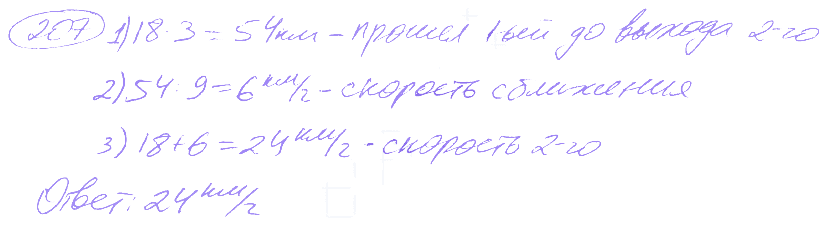 207 1) 18·3=54км – прошел 1-ый до выхода 2-го
2) 54·9=6 км/г – скорость сближения
3) 18+6=24 км/г – скорость 2-го
Ответ: 24 км/г